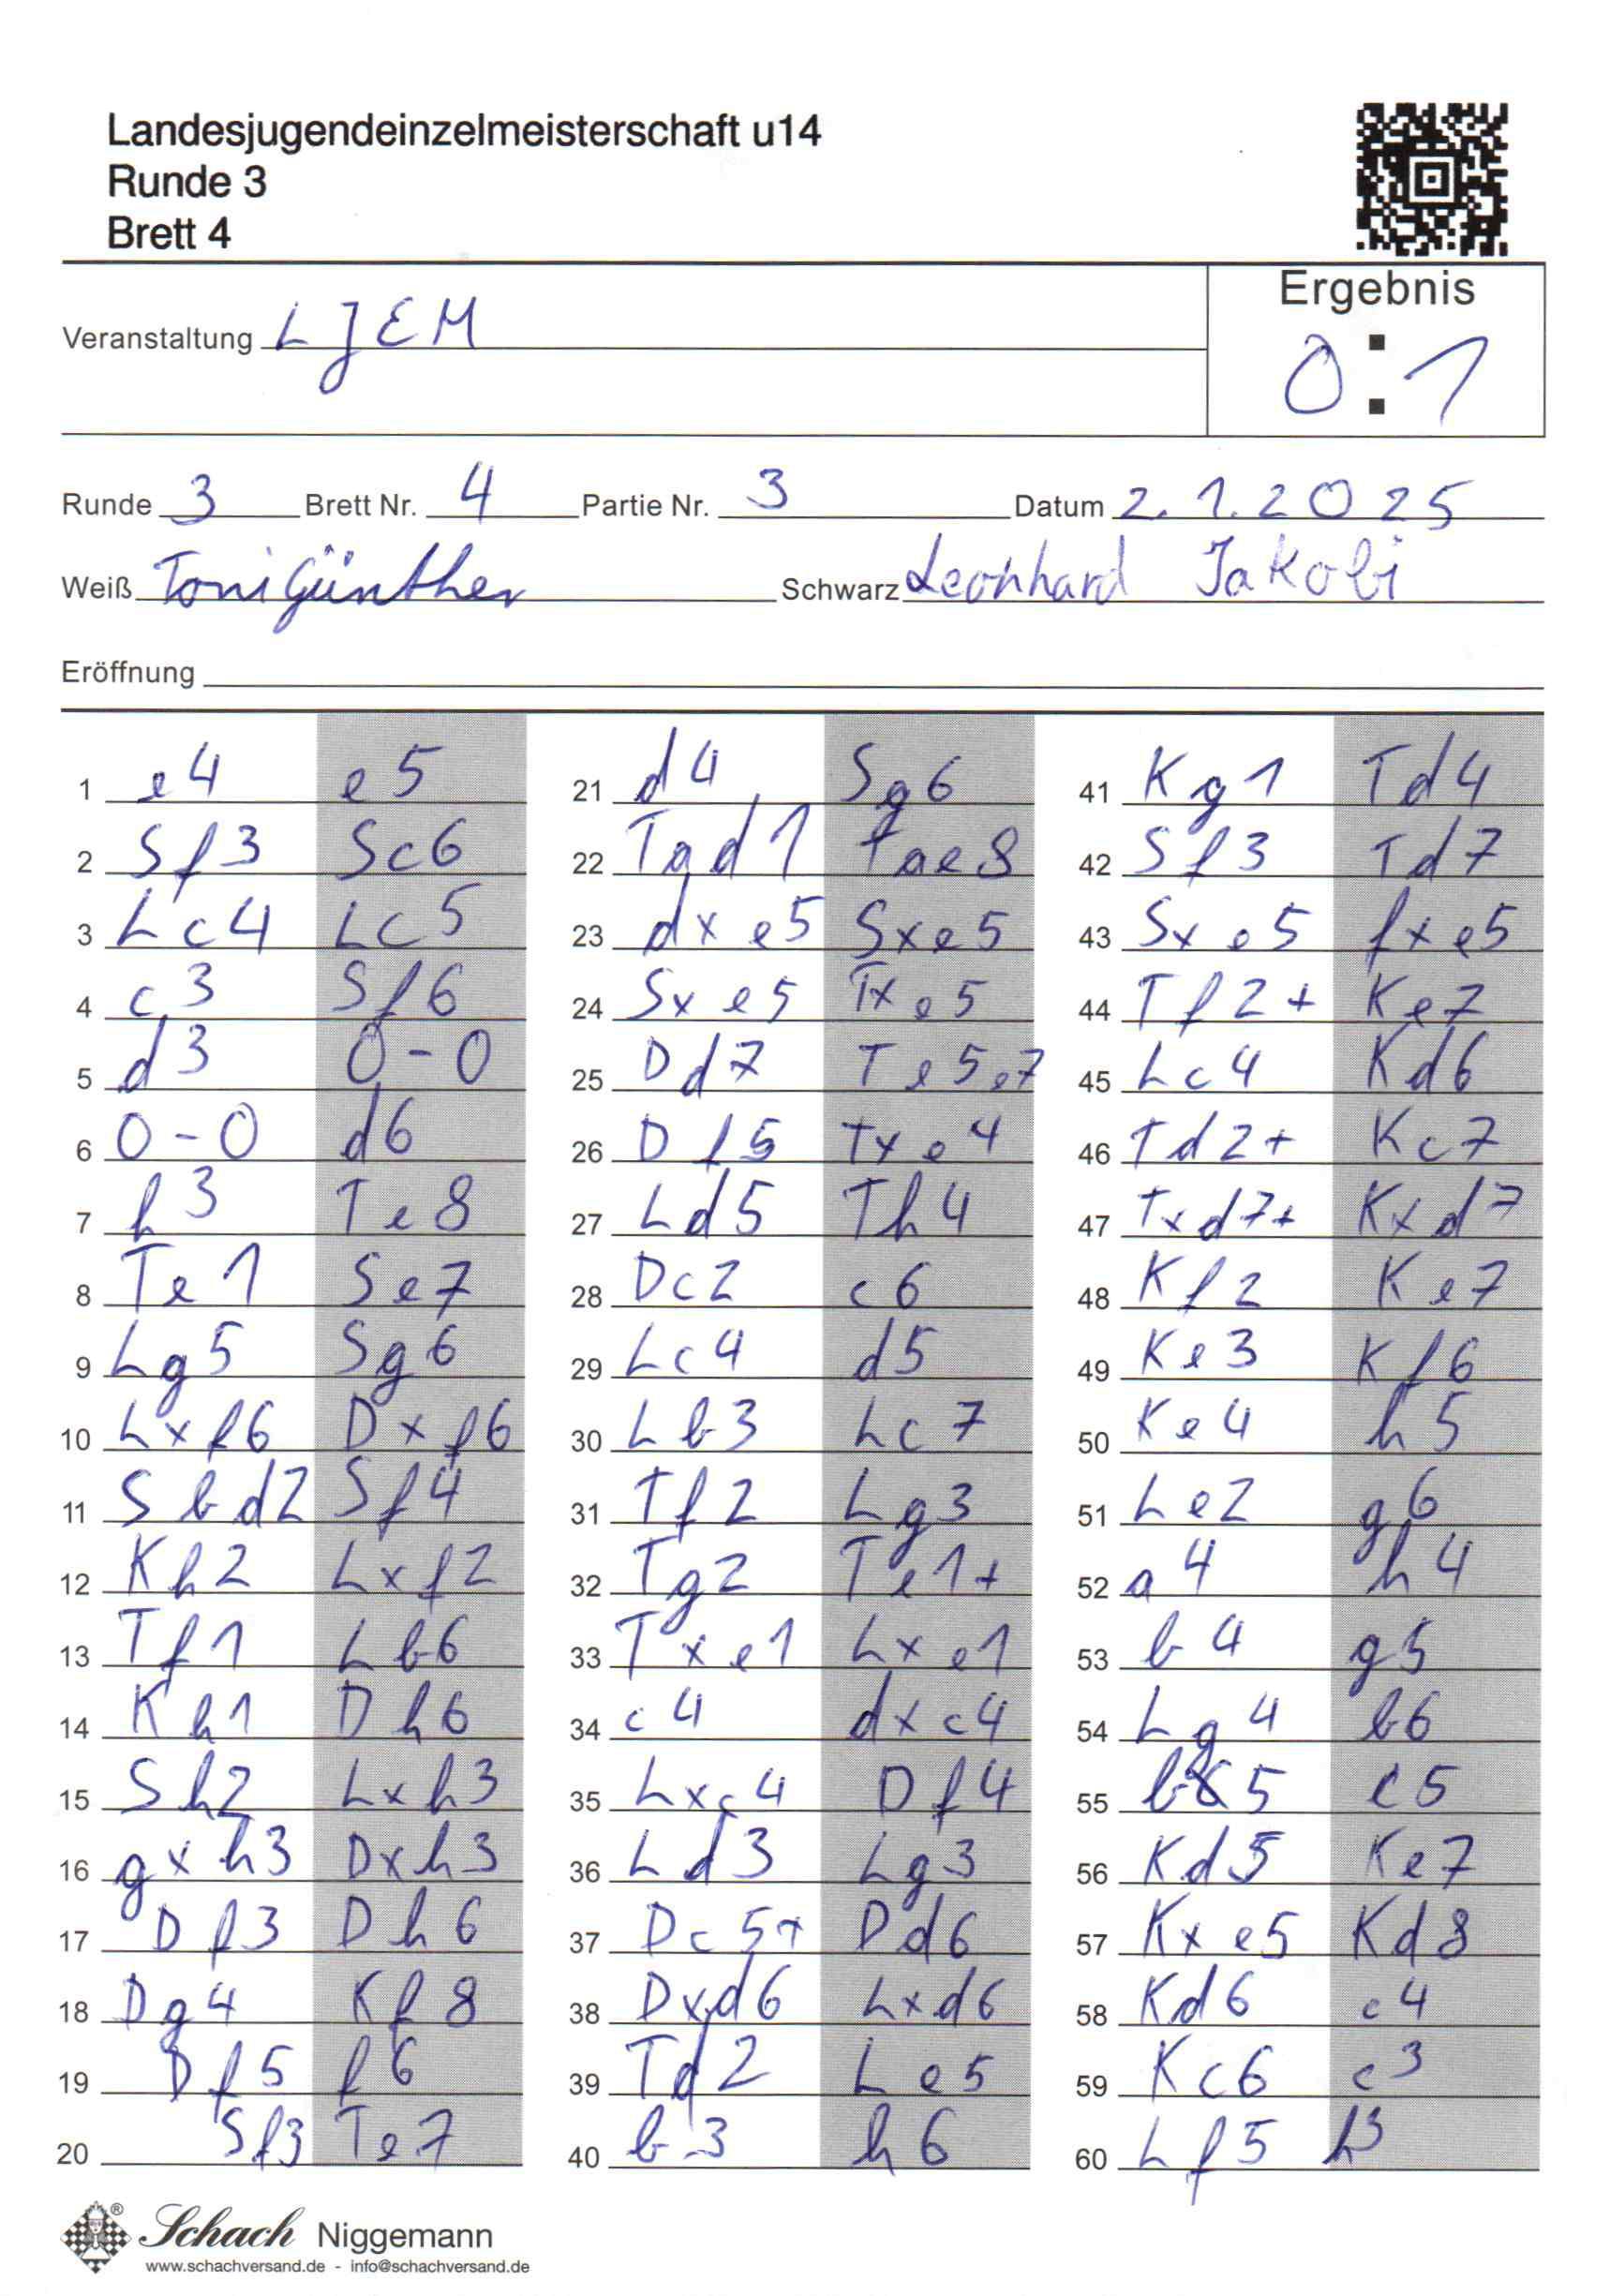 Landesjugendeinzelmeisterschaft u14
Runde 3
Brett 4
Ergebnis
Veranstaltung LJEM
0:1
Runde 3 Brett Nr. 4 Partie Nr. 3 Datum 2.1.2025
Weiß Toni Günther Schwarz Leonhard Jakobi
Eröffnung
1 e4 e5
2 Sf3 Sc6
3 Lc4 Lc5
4 c3 Sf6
5 d3 0-0
6 0-0 d6
7 h3 Te8
8 Te1 Se7
9 Lg5 Sg6
10 Lxf6 Dxf6
11 Sbd2 Sf4
12 Kh2 Lxf2
13 Tf1 Lb6
14 Kh1 Dh6
15 Sh2 Lxh3
16 gxh3 Dxh3
17 Df3 Dh6
18 Dg4 Kf8
19 Df5 f6
20 Sf3 Te7
21 d4 Sg6
22 Tad1 Tae8
23 dxe5 Sxe5
24 Sxe5 Txe5
25 Dd7 Te5e7
26 Df5 Txe4
27 Ld5 Th4
28 Dc2 c6
29 Lc4 d5
30 Lb3 Lc7
31 Tf2 Lg3
32 Tg2 Te1+
33 Txe1 Lxe1
34 c4 dxc4
35 Lxc4 Df4
36 Ld3 Lg3
37 Dc5+ Dd6
38 Dxd6 Lxd6
39 Td2 Le5
40 b3 h6
41 Kg1 Td4
42 Sf3 Td7
43 Sxe5 fxe5
44 Tf2+ Ke7
45 Lc4 Kd6
46 Td2+ Kc7
47 Txd7+ Kxd7
48 Kf2 Ke7
49 Ke3 Kf6
50 Ke4 h5
51 Le2 g6
52 a4 h4
53 b4 g5
54 Lg4 b6
55 b5 c5
56 Kd5 Ke7
57 Kxe5 Kd8
58 Kd6 c4
59 Kc6 c3
60 Lf5 h3
Schach Niggemann
www.schachversand.de - info@schachversand.de